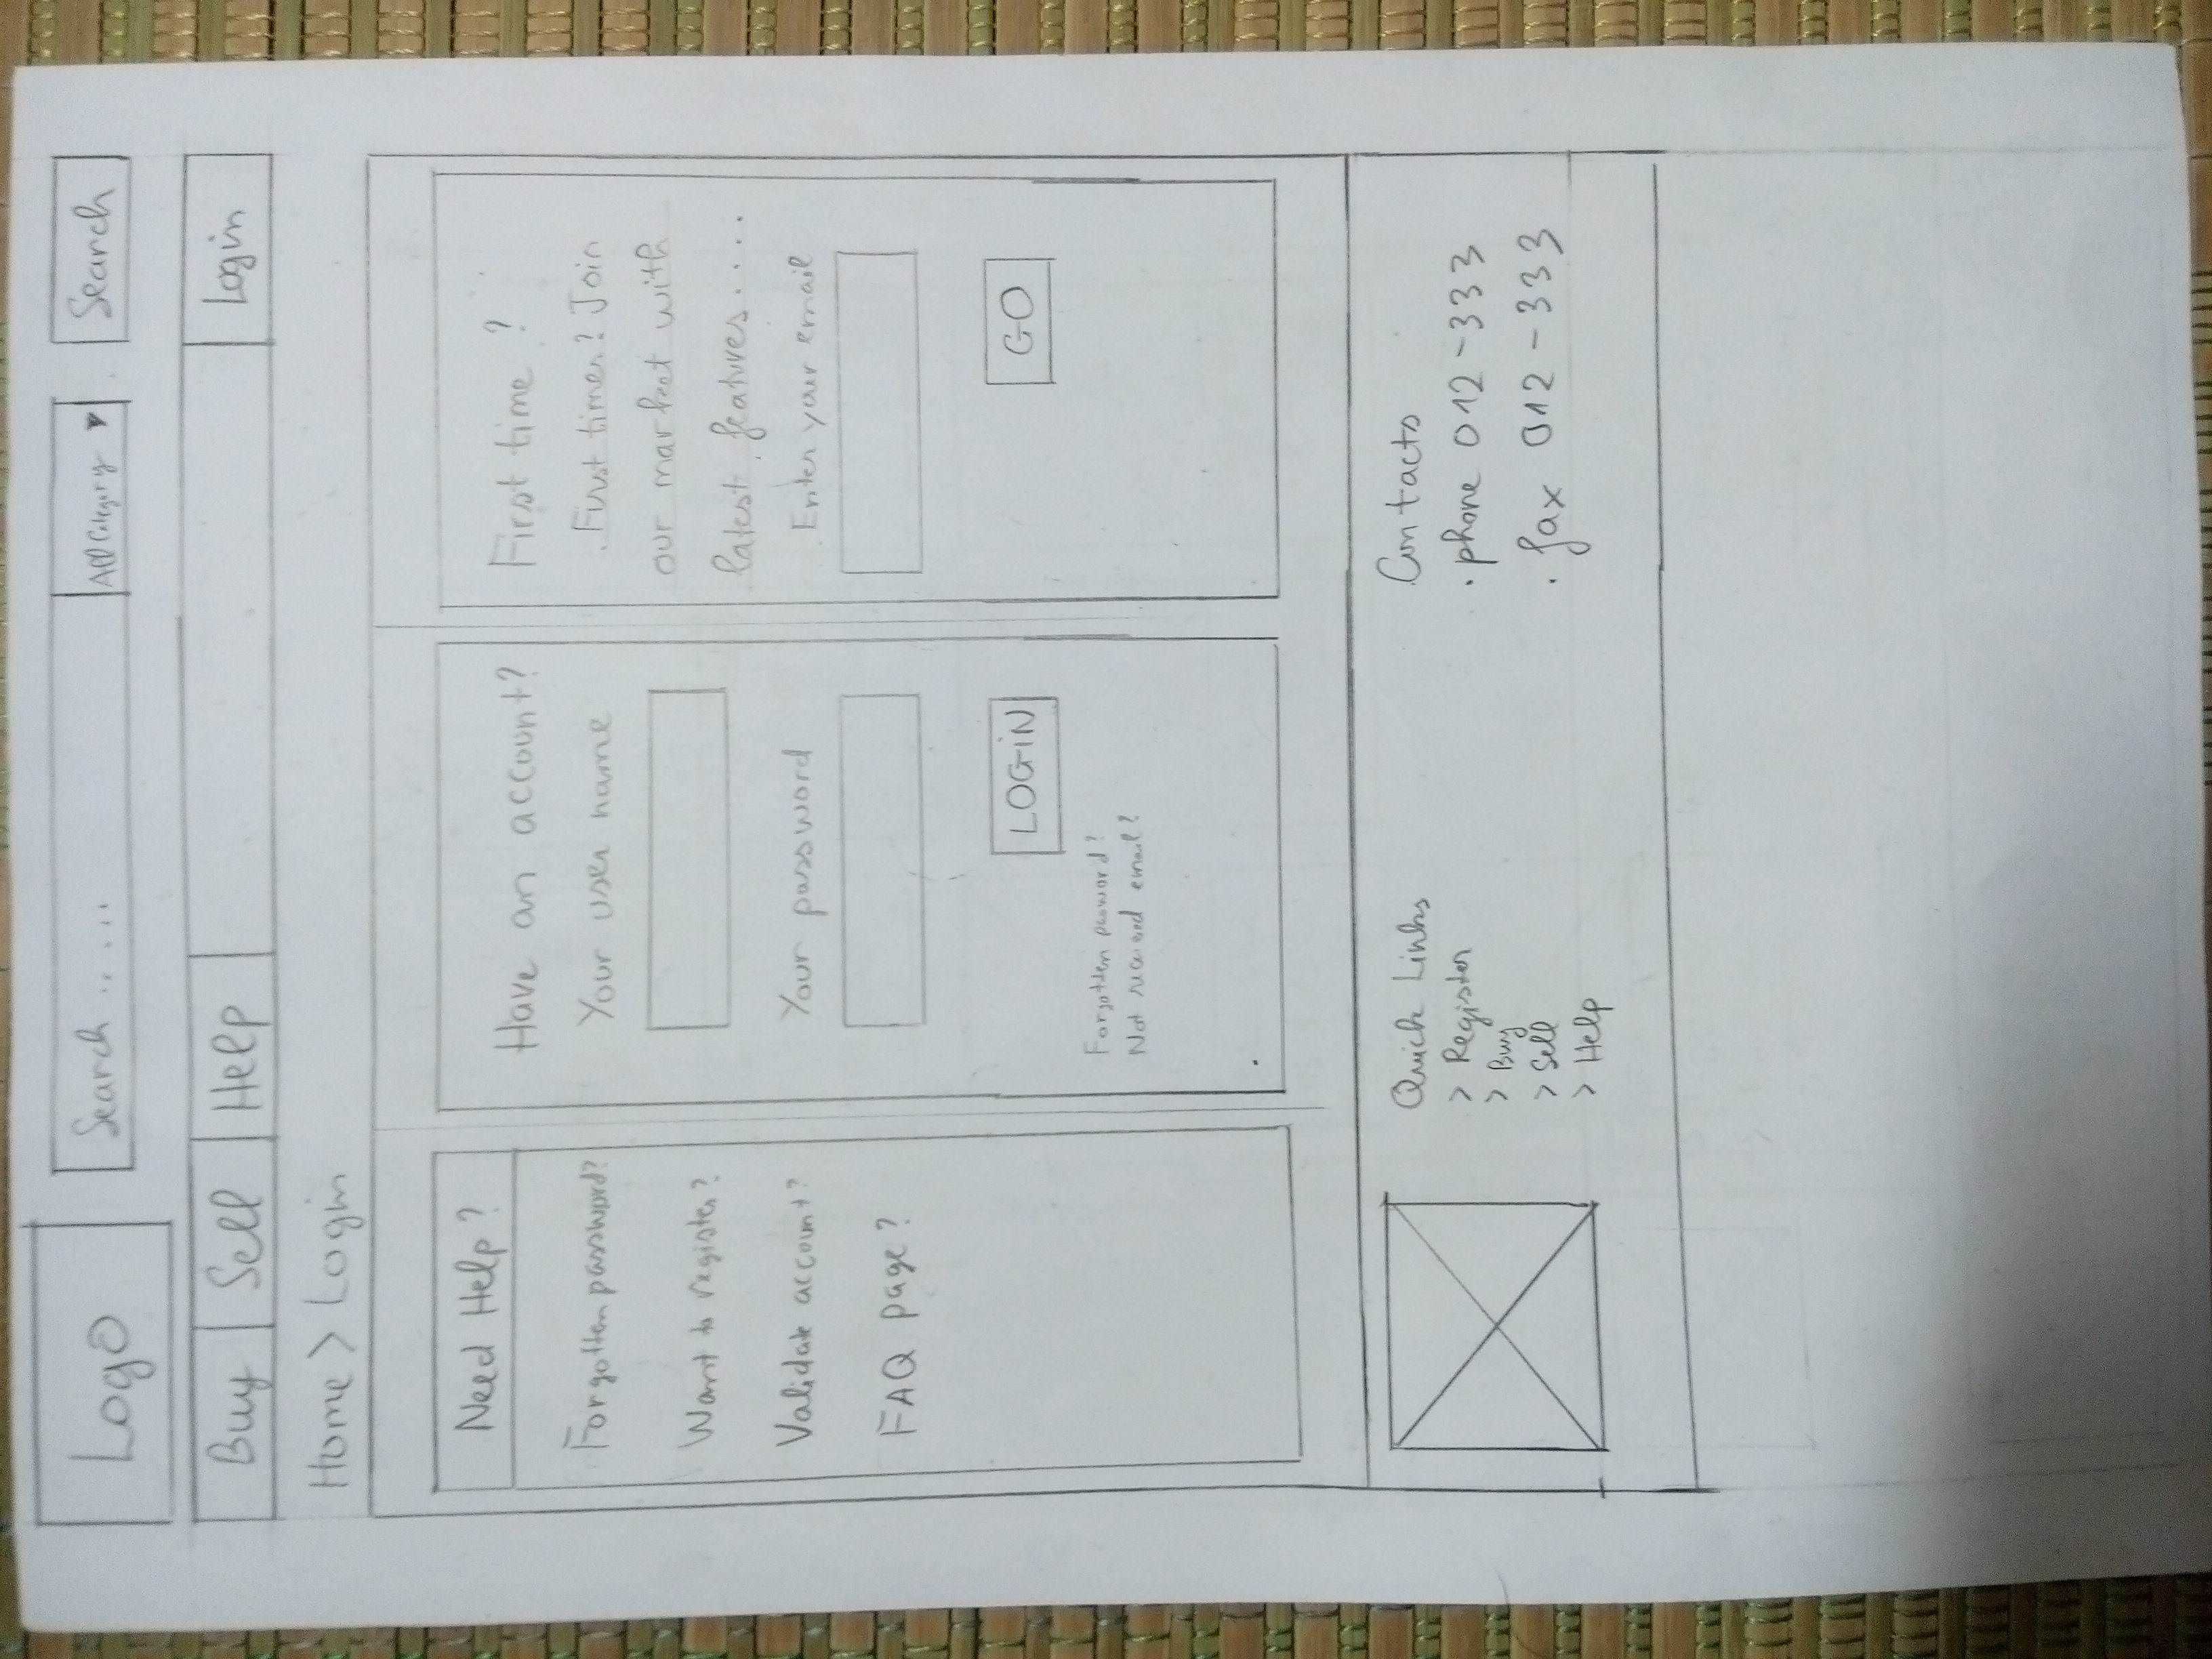 Logo
Search .. ...
All Category ▼
Search
Buy
Sell
Help
Login
Home > Login
Need Help?
Forgotten password?
Want to register?
Validate account?
FAQ page?
Have an account?
Your user name
Your password
LOGiN
Forgotten password?
Not received email?
First time ?
First timer? Join
our market with
latest features....
Enter your email
GO
Quick Links
> Register
> Buy
> Sell
> Help
Contacts
. phone 012-333
. fax 012-333